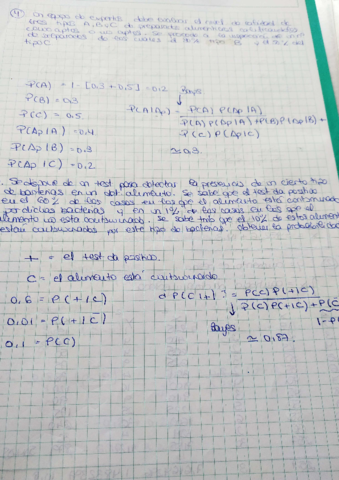 4) Un equipo de expertos debe evaluar el nivel de calidad de
tres tipos A, B y C de preparados alimenticios
como aptos o no aptos. Se
de preparados de los cuales el 30% tipo B y
tipo C
P(A) = 1 - [0,3 + 0,5] = 0,2
P(B) = 0,3
P(C) = 0,5
P(Ap|A) = 0,4
P(Ap|B) = 0,3
P(Ap|C) = 0,2
Bayes
P(A|Ap) = P(A) P(Ap|A)
P(A) P(Ap|A) + P(B) P(Ap|B) +
P(C) P(Ap|C)
≃ 0,3
. Se dispone de un test para detectar la presencia de un cierto tipo
de bacterias en un alimento. Se sabe que el test da positivo
en el 60% de los casos en los que el alimento está contaminado
por dichas bacterias y en un 1% de los casos en los que el
alimento no está contaminado. Se sabe que el 10% de estos alimentos
están contaminados por este tipo de bacterias. Obtener la probabilidad
+ = el test da positivo.
C = el alimento está contaminado
0,6 = P(+|C)
0,01 = P(+|C)
0,1 = P(C)
¿P(C|+)? = P(C) P(+|C)
P(C) P(+|C) + P(C
1-P(
Bayes
≃ 0,87.